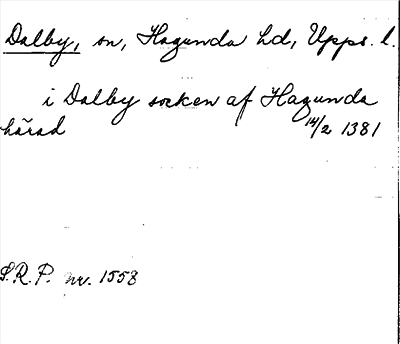 Dalby, sn, Hagunda hd, Upps. l.
i Dalby socken af Hagunda
härad 14/2 1381
S.R.P. nr. 1558